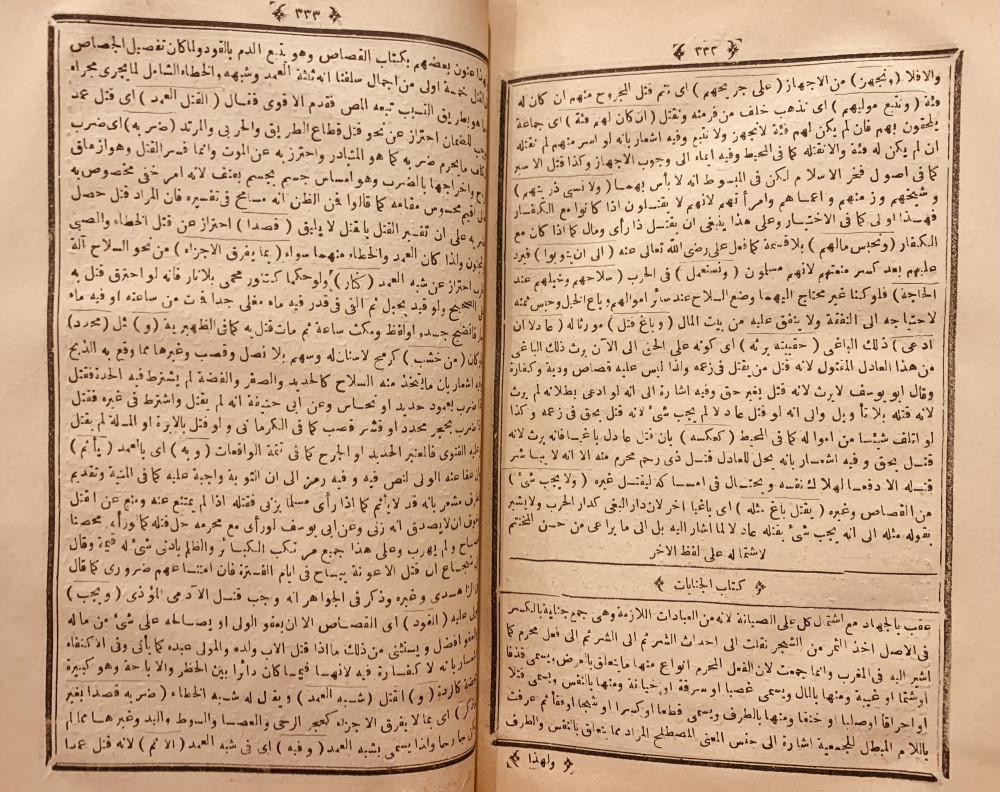 ﴿ ٣٣٢ ﴾
والافلا ( ونجهز ) من الاجهاز ( على جريحهم ) اى نتم قتل المجروح منهم ان كان له
فئة ( ونتبع موليهم ) اى نذهب خلف من فر منه ونقتل ( ان كان لهم فئة ) اى جماعة
يلحقون بهم فان لم يكن لهم فئة لانجهز ولا نتبع وفيه اشعار بانه لو اسر منهم لم نقتله
ان لم يكن له فئة والانقتله كما فى المحيط وفيه ايماء الى وجوب الاجهاز وكذا قتل الاسير
كما فى اصول فخر الاسلام لكن فى المبسوط انه لا بأس بهما ( ولا نسبى ذريتهم )
وشيخهم وزمنهم واعماهم وامرأتهم لانهم لا يقتلون اذا كانوا مع الكفار
فهذا اولى كما فى الاختيار وعلى هذا ينبغى ان يقتل ذا رأى ومال كما اذا كان مع
الكفار ( ونحبس مالهم ) بلا قسمة كما فعل على رضى الله تعالى عنه ( الى ان يتوبوا ) فيرد
عليهم بعد كسر منعتهم لانهم مسلمون ( ونستعمل ) فى الحرب ( سلاحهم وخيلهم عند
الحاجة ) فلو كنا غير محتاج اليهما وضع السلاح عند سائر اموالهم وباع الخيل وحبس ثمنه
لاحتياجه الى النفقة ولا ينفق عليه من بيت المال ( وباغ قتل ) مورثا له ( عادلا ان
ادعى ) ذلك الباغى ( حقيته يرثه ) اى كونه على الحق الى الآن يرث ذلك الباغى
من هذا العادل المقتول لانه قتل من يقتل فى زعمه ولذا ليس عليه قصاص ودية وكفارة
وقال ابو يوسف لايرث لانه قتل بغير حق وفيه اشارة الى انه لو ادعى بطلانه لم يرث
لانه قتله بلا تأويل والى انه لو قتل عادلا لم يجب شئ لانه قتل بحق فى زعمه وكذا
لو اتلف شيئا من امواله كما فى المحيط ( كعكسه ) بان قتل عادل باغيا فانه يرث لانه
قتل بحق وفيه اشعار بانه يحل للعادل قتل ذى رحم محرم منه الا انه لا يباشر
قتله الا دفعا لهلاك نفسه ويحتال فى امساكه ليقتل غيره ( ولا يجب شئ )
من القصاص وغيره ( بقتل باغ مثله ) اى باغيا اخر لان دار البغى كدار الحرب ولا يشير
بقوله مثله الى انه يجب شئ بقتله عادلا لما اشار اليه بل الى ما يراعى من حسن المختتم
لاشتماله على لفظ الاخر
﴿ كتاب الجنايات ﴾
عقب بالجهاد مع اشتمال كل على الصيانة لانه من العبادات اللازمة وهى جمع جناية بالكسر
فى الاصل اخذ الثمر من الشجر نقلت الى احداث الشر ثم الى الشر ثم الى فعل محرم كما
اشير اليه فى المغرب وانما جمعت لان الفعل المحرم انواع منها ما يتعلق بالعرض ويسمى قذفا
اوشتما او غيبة ومنها بالمال ويسمى غصبا او سرقة او خيانة ومنها بالنفس ويسمى قتلا
او احراقا اوصلبا او خنقا ومنها بالطرف ويسمى قطعا او كسرا او شجا وفقأ ثم عرفت
باللام المبطل للجمعية اشارة الى جنس المعنى المصطلح المراد مما يتعلق بالنفس والطرف
﴿ ولهذا ﴾
﴿ ٣٣٣ ﴾
عنون بعضهم بكتاب القصاص وهو يتبع الدم بالقود ولما كان تفصيل الخصاص
خمسة اولى من اجمال سلفنا انه ثلثة العمد وشبهه والخطاء الشامل لما يجرى مجراه
هو بطريق التسبب تبعه المص فقدم الاقوى فقال ( القتل العمد ) اى قتل عمد
للضمان احتراز عن نحو قتل قطاع الطريق والحربى والمرتد ( ضربه ) اى ضرب
المحرم ضربه كما هو المتبادر واحترز به عن الموت وانما فسر القتل وهو ازهاق
واخراجها بالضرب وهو امساس جسم بجسم بعنف لانه امر خفى مخصوص به
اقيم محسوس مقامه كما قالوا فمن الظن انه مسامح فى تفسيره فان المراد قتل حصل
به على ان تفسير القتل بالقتل لا يليق ( قصدا ) احتراز عن قتل الخطاء والصبى
ولذا كان العمد والخطاء منهما سواء ( بما يفرق الاجزاء ) من نحو السلاح آلة
احتراز عن شبه العمد ( كنار ) ولو حكما كتنور محمى بلا نار فانه لو احترق قتل به
الصحيح ولو قيد بحبل ثم القى فى قدر فيه ماء مغلى جدا فمات من ساعته او فيه ماء
فانضج جسده اواقفط ومكث ساعة ثم مات قتل به كما فى الظهيرية ( و ) مثل ( محدد )
كان ( من خشب ) كرمح لاسنان له وسهم بلا نصل وقصب وغيرها مما وقع به الذبح
اشعار بان مايتخذ منه السلاح كالحديد والصفر والفضة لم يشترط فيه الحدة فقتل
ضرب بعمود حديد او نحاس وعن ابى حنيفة انه لم يقتل واشترط فى غيره فقتل
ضرب بحجر محدد او قشر قصب كما فى الكرمانى ولو قتل بالابرة او المسلة لم يقتل
الفتوى فالمعتبر الحديد او الجرح كما فى تتمة الواقعات ( وبه ) اى بالعمد ( يأثم )
عفا عنه الولى لنص فيه وفيه رمز الى ان التوبة واجبة عليه كما فى المنية وتقديم
مشعر بانه قد لايأثم كما اذا رأى مسلما يزنى فقتله اذا لم يمتنع عنه ومنع عن القتل
ان لايصدق انه زنى وعن ابى يوسف لو رأى مع محرمه حل قتله كما لو رأه محصنا
ولم يهرب وعلى هذا جميع مرتكب الكبائر والظالم بادنى شئ له قيمة وقال
ان قتل الاعونة يباح فى ايام الفترة فان امتناعهم ضرورى كما قال
وغيره وذكر فى الجواهر انه وجب قتل الادمى المؤذى ( ويجب )
عليه ( القود ) اى القصاص الا ان يعفو الولى او يصالحه على شئ من ماله
افضل ويستثنى من ذلك ما اذا قتل الاب ولده والمولى عبده كما يأتى وفى الاكتفاء
بانه لا كفارة فيه لانها فيما كان دائرا بين الحظر والاباحة وهو كبيرة
كالردة ( و ) القتل ( شبه العمد ) ويقال له شبه الخطاء ( ضربه قصدا بغير
) اى بما لا يفرق الاجزاء كحجر الرحى والعصا والسوط واليد وغيرها مما لم
جارحا ولذا يسمى بشبه العمد ( وفيه ) اى فى شبه العمد ( الاثم ) لانه قتل عمدا